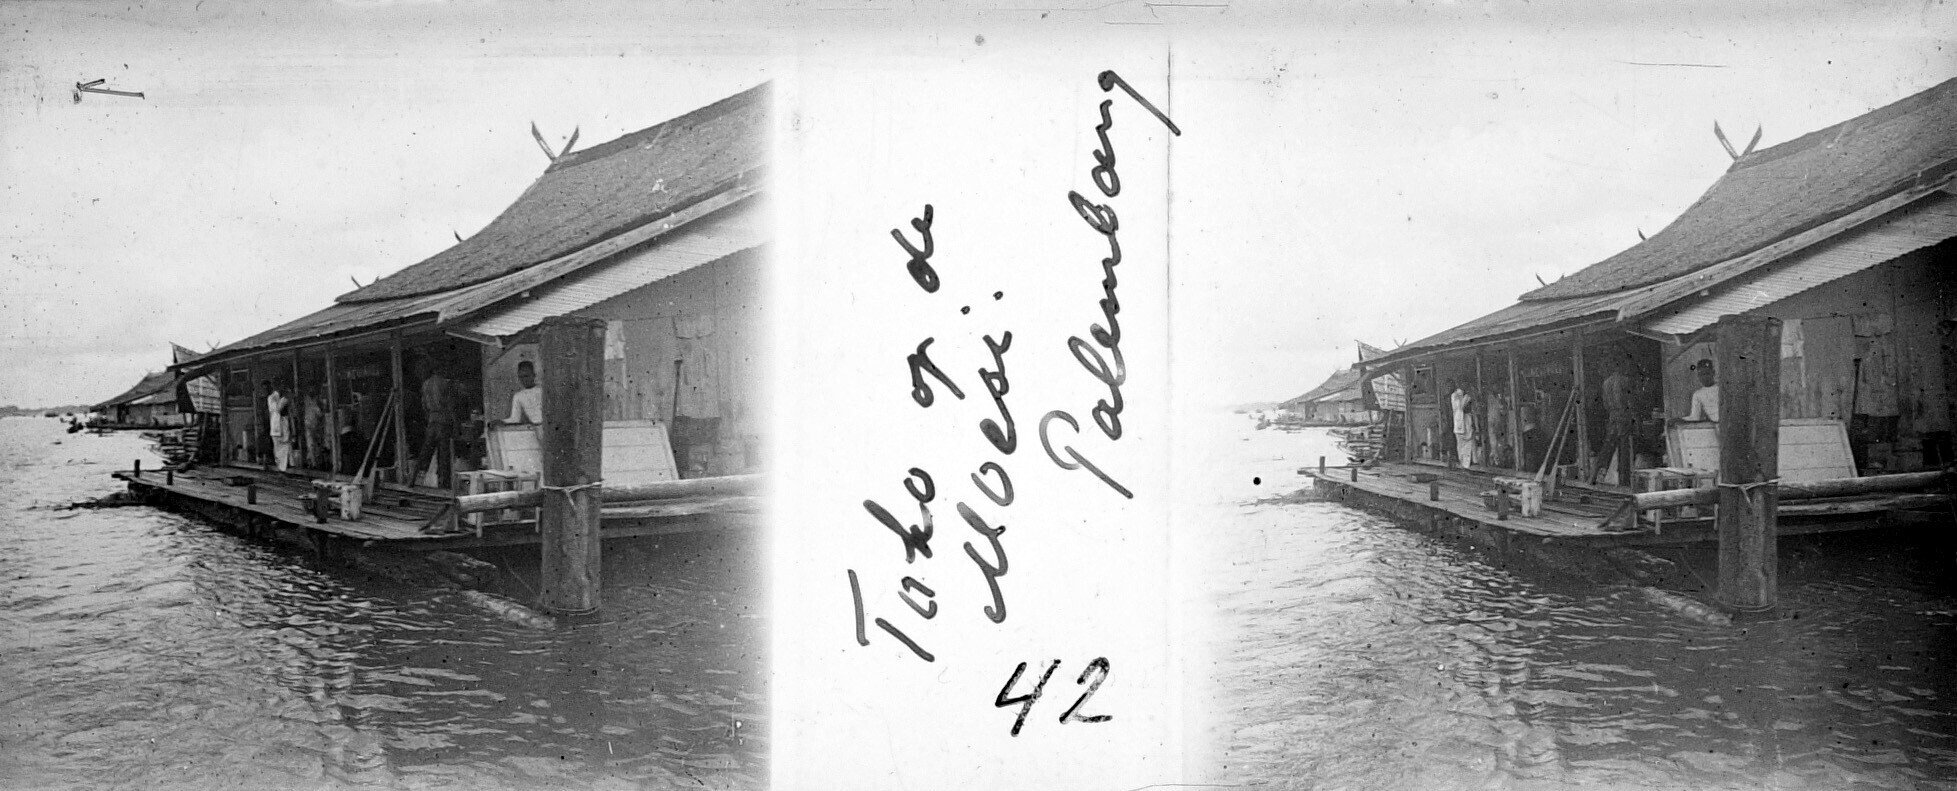 Toko op de
Moesi.
Palembang
42